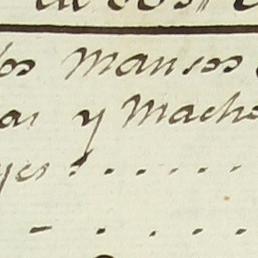 os Mansos
as y Macho
yes : . . . . .
- . . . .